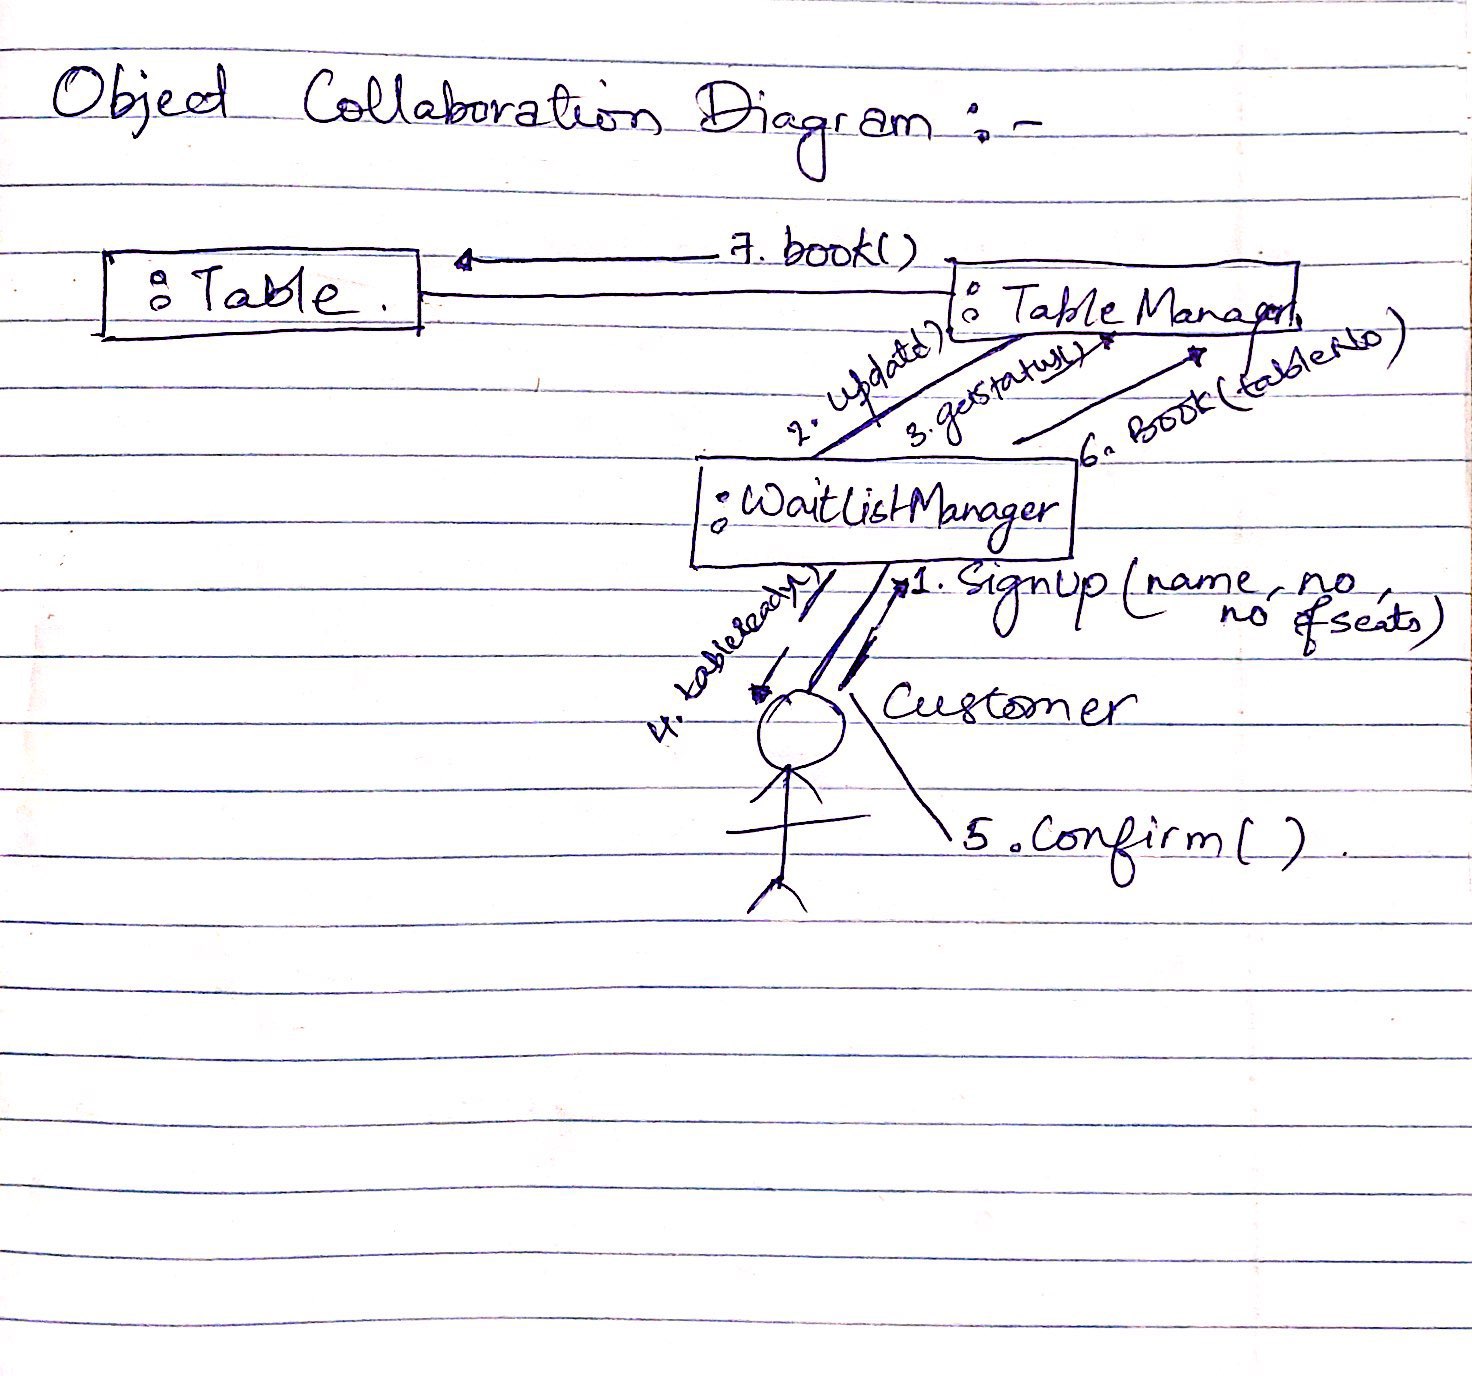 Object Collaboration Diagram :-
7. book()
: Table.
: Table Manager
2. update()
3. getstatus()
6. Book(tableNo)
: WaitlistManager
1. Signup (name, no,
no of seats)
4. tableready()
Customer
5. Confirm( ).